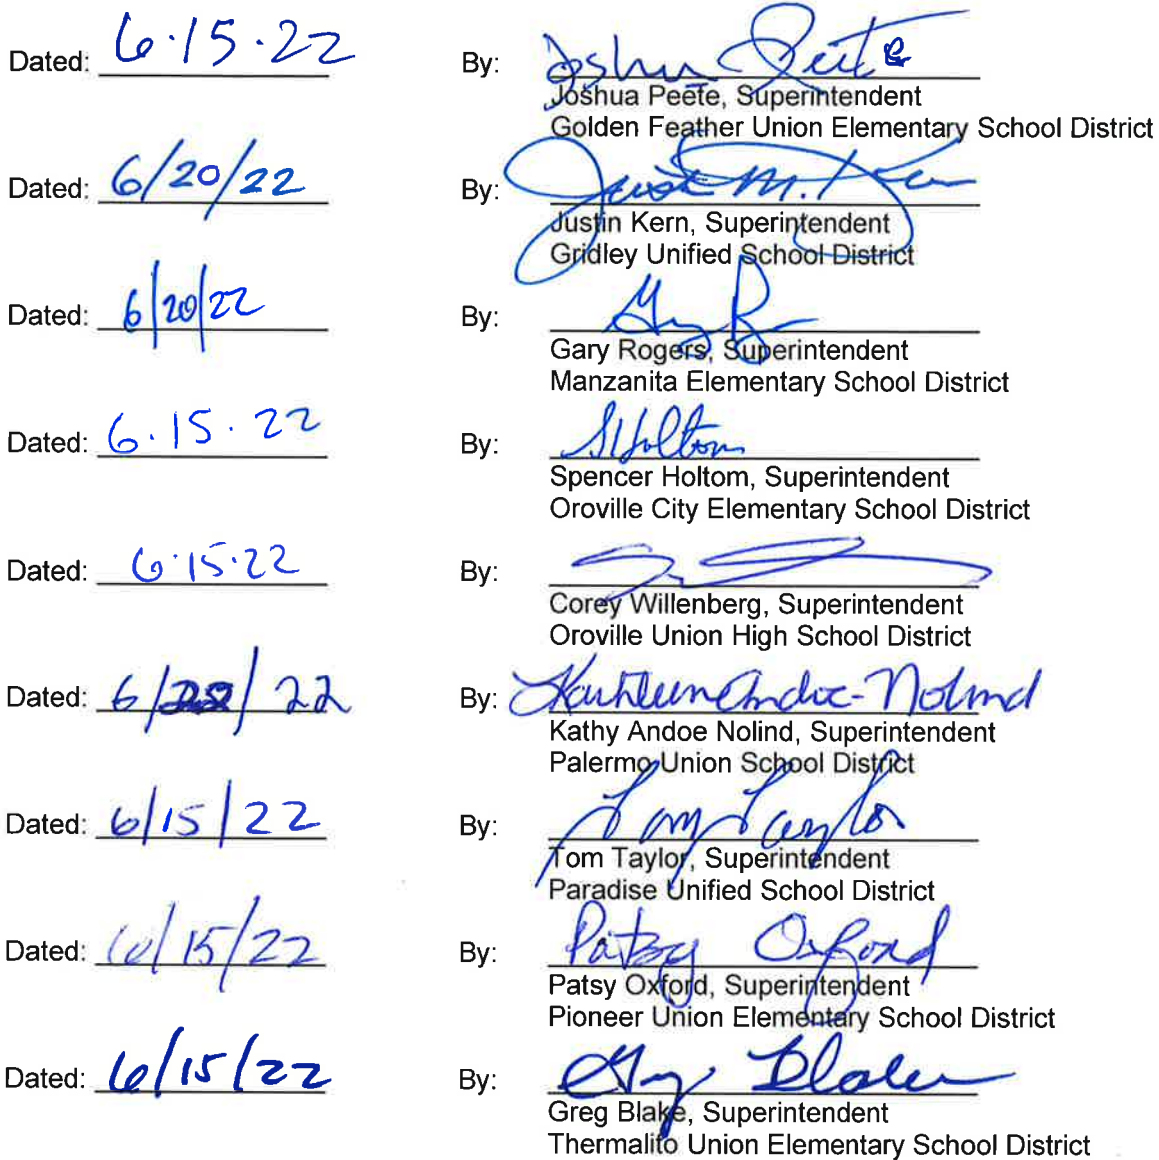 Dated: 6·15·22 By: Joshua Peete
Joshua Peete, Superintendent
Golden Feather Union Elementary School District
Dated: 6/20/22 By: Justin M. Kern
Justin Kern, Superintendent
Gridley Unified School District
Dated: 6/20/22 By:
Gary Rogers, Superintendent
Manzanita Elementary School District
Dated: 6.15.22 By: SHoltom
Spencer Holtom, Superintendent
Oroville City Elementary School District
Dated: 6·15·22 By:
Corey Willenberg, Superintendent
Oroville Union High School District
Dated: 6/ /22 By: Kathleen Andoe-Nolind
Kathy Andoe Nolind, Superintendent
Palermo Union School District
Dated: 6/15/22 By: Tom Taylor
Tom Taylor, Superintendent
Paradise Unified School District
Dated: 6/15/22 By: Patsy Oxford
Patsy Oxford, Superintendent
Pioneer Union Elementary School District
Dated: 6/15/22 By: Greg Blake
Greg Blake, Superintendent
Thermalito Union Elementary School District